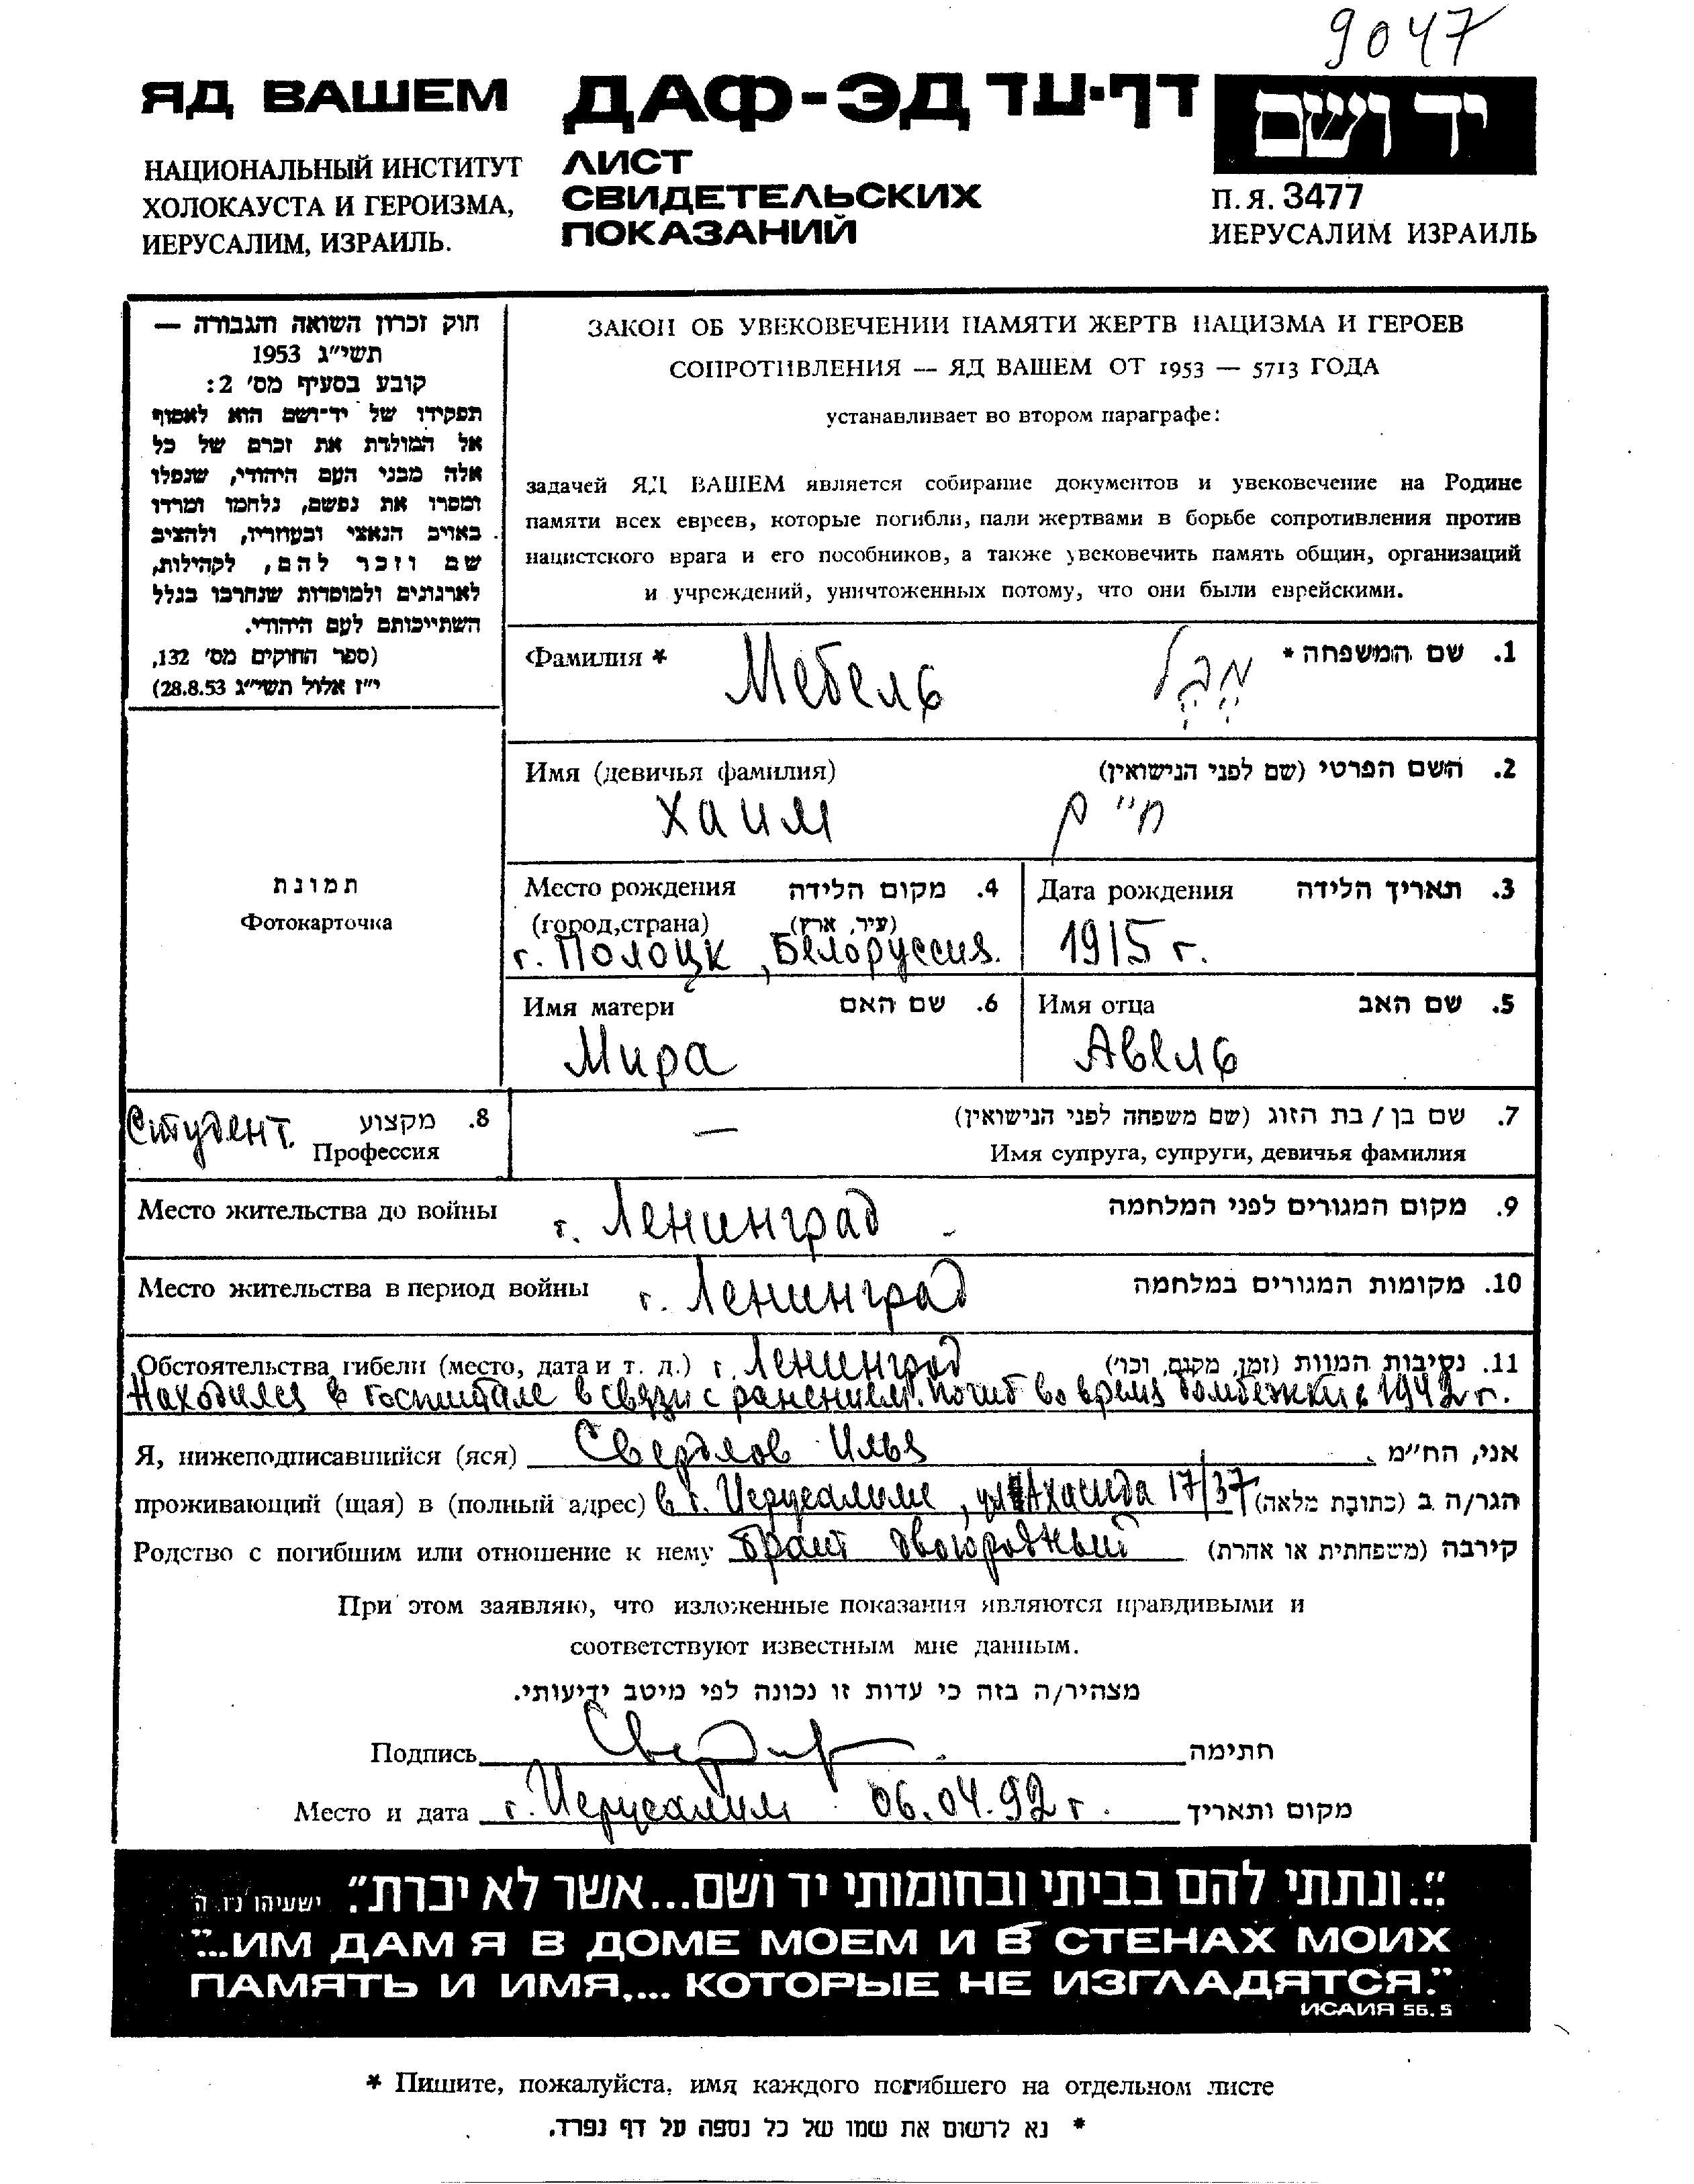 9047
ЯД ВАШЕМ
НАЦИОНАЛЬНЫЙ ИНСТИТУТ
ХОЛОКАУСТА И ГЕРОИЗМА,
ИЕРУСАЛИМ, ИЗРАИЛЬ.
ДАФ-ЭД דף-עד
ЛИСТ
СВИДЕТЕЛЬСКИХ
ПОКАЗАНИЙ
יד ושם
П.Я. 3477
ИЕРУСАЛИМ ИЗРАИЛЬ
חוק זכרון השואה והגבורה —
תשי״ג 1953
קובע בסעיף מס׳ 2:
תפקידו של יד־ושם הוא לאסוף
אל המולדת את זכרם של כל
אלה מבני העם היהודי, שנפלו
ומסרו את נפשם, נלחמו ומרדו
באויב הנאצי ובעוזריו, ולהציב
שם וזכר להם, לקהילות,
לארגונים ולמוסדות שנחרבו בגלל
השתייכותם לעם היהודי.
(ספר החוקים מס׳ 132,
י״ז אלול תשי״ג 28.8.53)
ЗАКОН ОБ УВЕКОВЕЧЕНИИ ПАМЯТИ ЖЕРТВ НАЦИЗМА И ГЕРОЕВ
СОПРОТИВЛЕНИЯ — ЯД ВАШЕМ ОТ 1953 — 5713 ГОДА
устанавливает во втором параграфе:
задачей ЯД ВАШЕМ является собирание документов и увековечение на Родине
памяти всех евреев, которые погибли, пали жертвами в борьбе сопротивления против
нацистского врага и его пособников, а также увековечить память общин, организаций
и учреждений, уничтоженных потому, что они были еврейскими.
Фамилия * Мебель מבל 1. שם המשפחה *
Имя (девичья фамилия) 2. השם הפרטי (שם לפני הנישואין)
Хаим חיים
תמונת
Фотокарточка
Место рождения 4. מקום הלידה
(город,страна) (עיר, ארץ)
г. Полоцк, Белоруссия.
Дата рождения 3. תאריך הלידה
1915 г.
Имя матери 6. שם האם
Мира
Имя отца 5. שם האב
Авель
Студент. 8. מקצוע
Профессия
— 7. שם בן / בת הזוג (שם משפחה לפני הנישואין)
Имя супруга, супруги, девичья фамилия
Место жительства до войны г. Ленинград 9. מקום המגורים לפני המלחמה
Место жительства в период войны г. Ленинград 10. מקומות המגורים במלחמה
Обстоятельства гибели (место, дата и т. д.) г. Ленинград 11. נסיבות המוות (זמן, מקום, וכו׳)
Находился в госпитале в связи с ранением. Погиб во время бомбежки в 1942 г.
Я, нижеподписавшийся (яся) Свердлов Илья אני, הח״מ
проживающий (щая) в (полный адрес) в г. Иерусалиме, 17/37 הגר/ה ב (כתובת מלאה)
Родство с погибшим или отношение к нему брат двоюродный קירבה (משפחתית או אחרת)
При этом заявляю, что изложенные показания являются правдивыми и
соответствуют известным мне данным.
מצהיר/ה בזה כי עדות זו נכונה לפי מיטב ידיעותי.
Подпись חתימה
Место и дата г. Иерусалим 06.04.92 г. מקום ותאריך
״...ונתתי להם בביתי ובחומותי יד ושם...אשר לא יכרת״. ישעיהו נו ה
"...ИМ ДАМ Я В ДОМЕ МОЕМ И В СТЕНАХ МОИХ
ПАМЯТЬ И ИМЯ.... КОТОРЫЕ НЕ ИЗГЛАДЯТСЯ."
ИСАИЯ 56.5
* Пишите, пожалуйста, имя каждого погибшего на отдельном листе
* נא לרשום את שמו של כל נספה על דף נפרד.